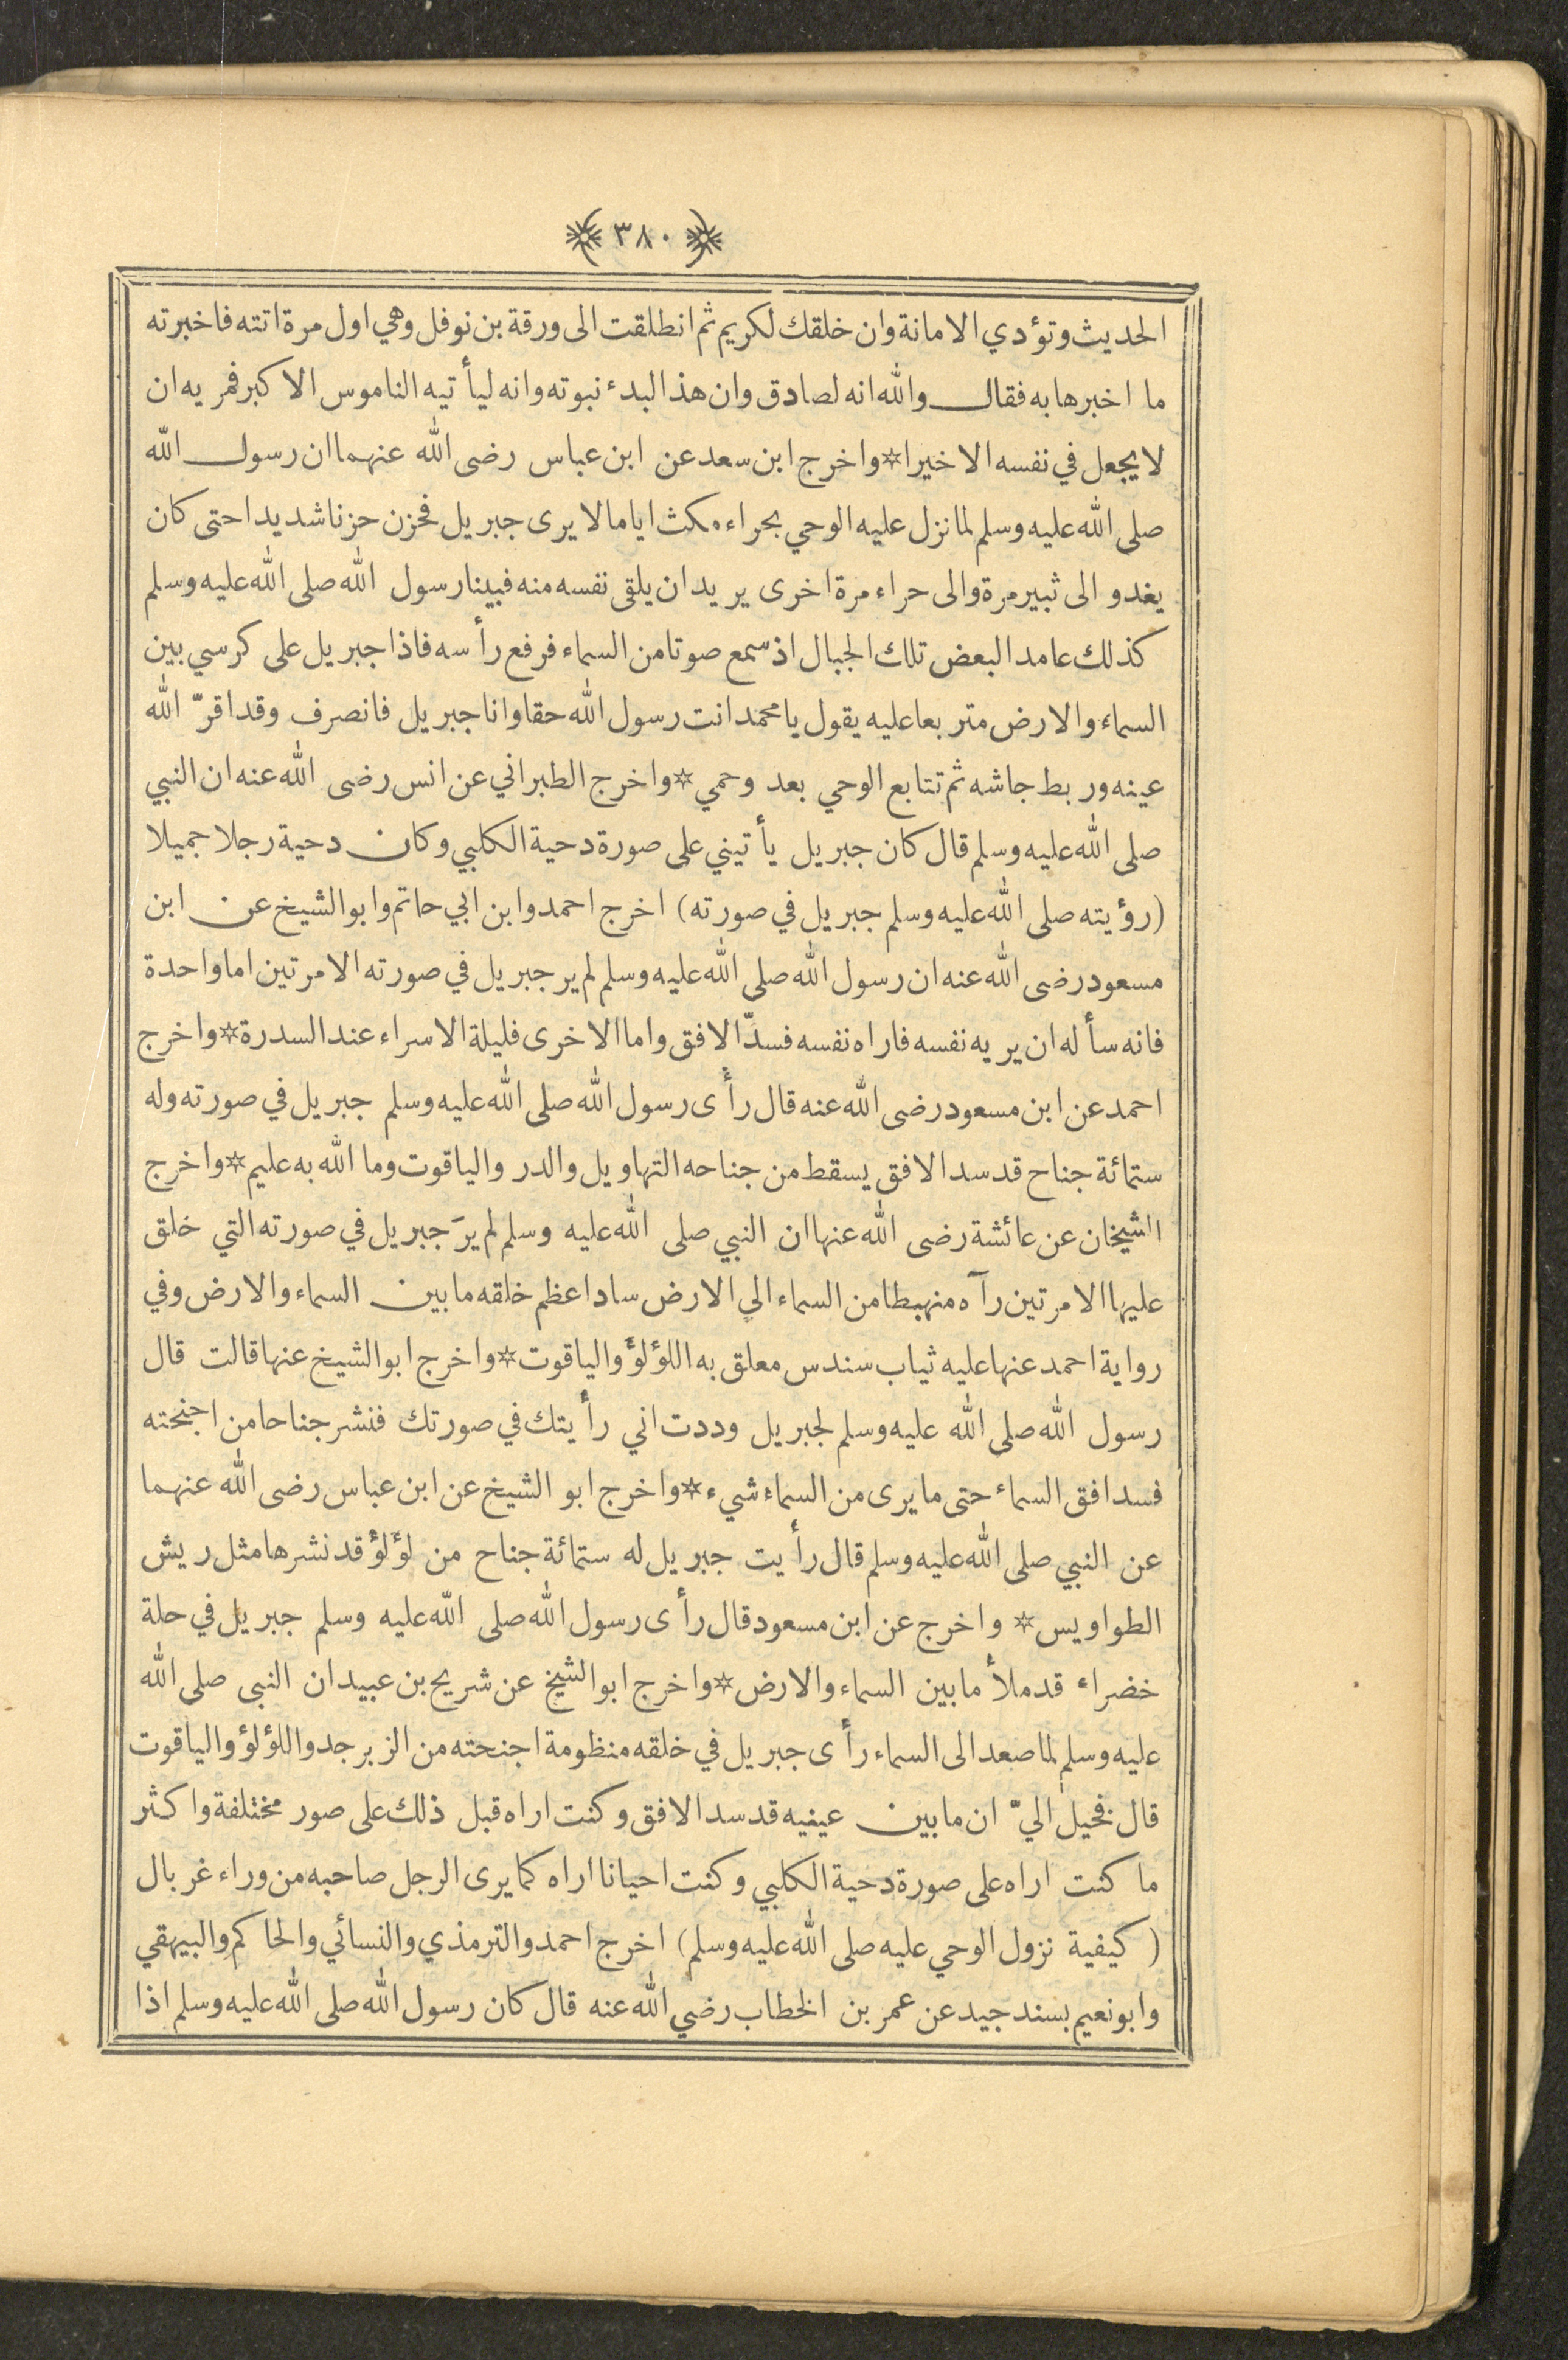 ٣٨٠
الحديث وتؤدي الامانة وان خلقك لكريم ثم انطلقت الى ورقة بن نوفل وهي اول مرة اتته فاخبرته
ما اخبرها به فقال والله انه لصادق وان هذا لبدء نبوته وانه ليأتيه الناموس الاكبر فمريه ان
لا يجعل في نفسه الا خيرا * واخرج ابن سعد عن ابن عباس رضى الله عنهما ان رسول الله
صلى الله عليه وسلم لما نزل عليه الوحي بحراء مكث اياما لا يرى جبريل فحزن حزنا شديدا حتى كان
يغدو الى ثبير مرة والى حراء مرة اخرى يريد ان يلقى نفسه منه فبينا رسول الله صلى الله عليه وسلم
كذلك عامدا لبعض تلك الجبال اذ سمع صوتا من السماء فرفع رأسه فاذا جبريل على كرسي بين
السماء والارض متربعا عليه يقول يا محمد انت رسول الله حقا وانا جبريل فانصرف وقد اقرّ الله
عينه وربط جاشه ثم تتابع الوحي بعد وحمي * واخرج الطبراني عن انس رضى الله عنه ان النبي
صلى الله عليه وسلم قال كان جبريل يأتيني على صورة دحية الكلبي وكان دحية رجلا جميلا
(رؤيته صلى الله عليه وسلم جبريل في صورته) اخرج احمد وابن ابي حاتم وابو الشيخ عن ابن
مسعود رضى الله عنه ان رسول الله صلى الله عليه وسلم لم ير جبريل في صورته الا مرتين اما واحدة
فانه سأله ان يريه نفسه فاراه نفسه فسدّ الافق واما الاخرى فليلة الاسراء عند السدرة * واخرج
احمد عن ابن مسعود رضى الله عنه قال رأى رسول الله صلى الله عليه وسلم جبريل في صورته وله
ستمائة جناح قد سد الافق يسقط من جناحه التهاويل والدر والياقوت وما الله به عليم * واخرج
الشيخان عن عائشة رضى الله عنها ان النبي صلى الله عليه وسلم لم يرَ جبريل في صورته التي خلق
عليها الا مرتين رآه منهبطا من السماء الي الارض سادا عظم خلقه ما بين السماء والارض وفي
رواية احمد عنها عليه ثياب سندس معلق به اللؤلؤ والياقوت * واخرج ابو الشيخ عنها قالت قال
رسول الله صلى الله عليه وسلم لجبريل وددت اني رأيتك في صورتك فنشر جناحا من اجنحته
فسد افق السماء حتى ما يرى من السماء شيء * واخرج ابو الشيخ عن ابن عباس رضى الله عنهما
عن النبي صلى الله عليه وسلم قال رأيت جبريل له ستمائة جناح من لؤلؤ قد نشرها مثل ريش
الطواويس * واخرج عن ابن مسعود قال رأى رسول الله صلى الله عليه وسلم جبريل في حلة
خضراء قد ملأ ما بين السماء والارض * واخرج ابو الشيخ عن شريح بن عبيد ان النبي صلى الله
عليه وسلم لما صعد الى السماء رأى جبريل في خلقه منظومة اجنحته من الزبرجد واللؤلؤ والياقوت
قال فخيل اليّ ان ما بين عينيه قد سد الافق وكنت اراه قبل ذلك على صور مختلفة واكثر
ما كنت اراه على صورة دحية الكلبي وكنت احيانا اراه كما يرى الرجل صاحبه من وراء غربال
(كيفية نزول الوحي عليه صلى الله عليه وسلم) اخرج احمد والترمذي والنسائي والحاكم والبيهقي
وابو نعيم بسند جيد عن عمر بن الخطاب رضي الله عنه قال كان رسول الله صلى الله عليه وسلم اذا